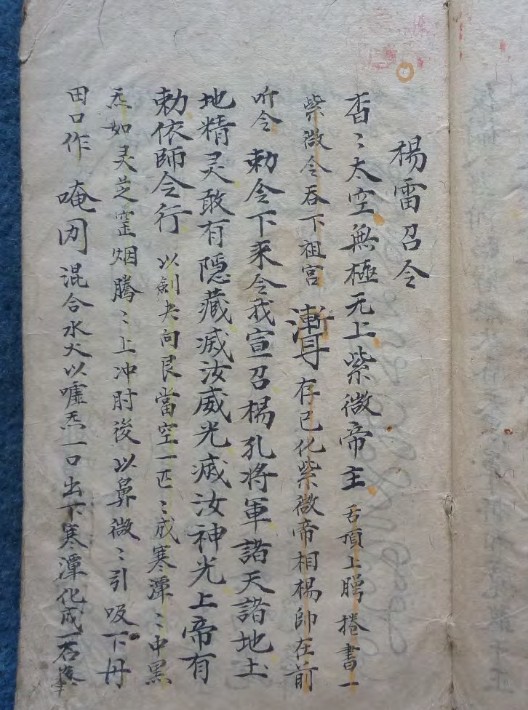 楊雷召令
杳〻太空無極无上紫微帝主 舌頂上腭捲書一
紫微令吞下祖宫 存已化紫微帝相楊師在前
听令 勅令下来令我宣召楊孔將軍諸天諸地土
地精灵敢有隐藏减汝威光减汝神光上帝有
勅依師令行 以剣夬向艮當空一匹〻成寒潭〻中黑
炁如灵芝窒烟騰〻上冲肘後以鼻微〻引吸下丹
田口作 唵 混合水火以嘘炁一口出下寒潭化成一石